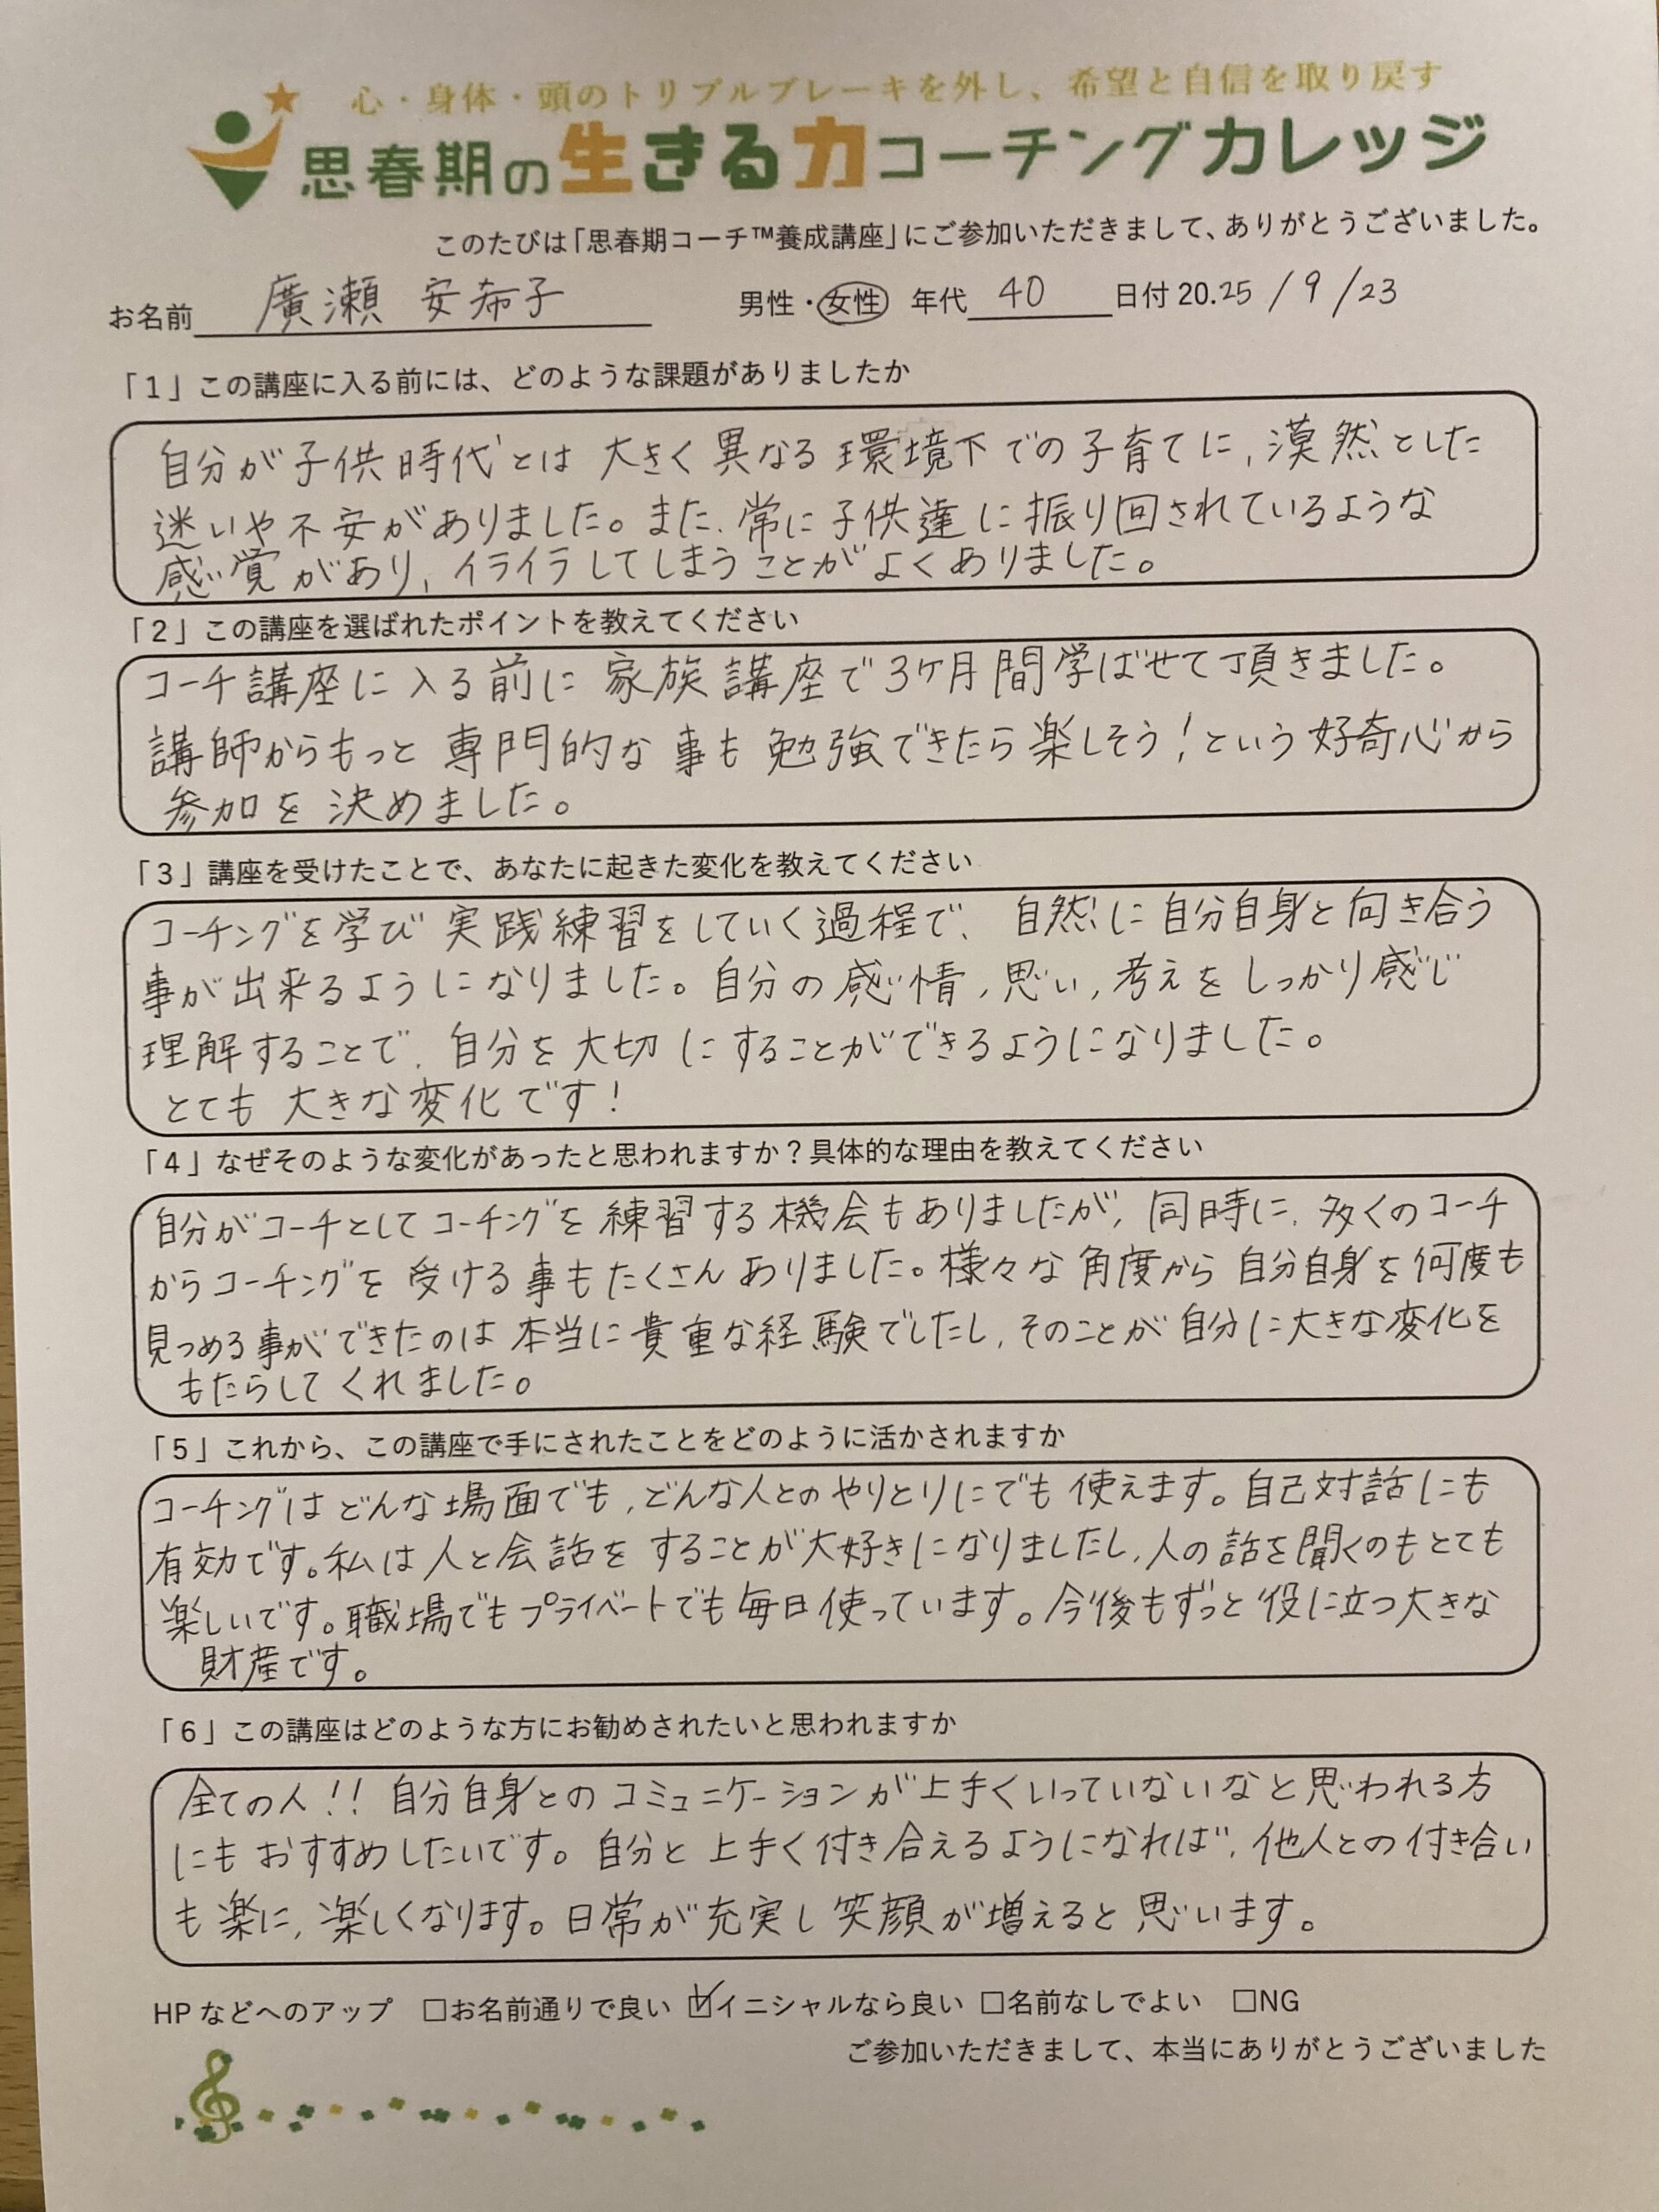 心・身体・頭のトリプルブレーキを外し、希望と自信を取り戻す
思春期の生きる力コーチングカレッジ
このたびは「思春期コーチ™養成講座」にご参加いただきまして、ありがとうございました。
お名前 廣瀬 安希子 男性・女性 年代 40 日付 20.25 / 9 / 23
「1」この講座に入る前には、どのような課題がありましたか
自分が子供時代とは大きく異なる環境下での子育てに、漠然とした
迷いや不安がありました。また、常に子供達に振り回されているような
感覚があり、イライラしてしまうことがよくありました。
「2」この講座を選ばれたポイントを教えてください
コーチ講座に入る前に家族講座で3ケ月間学ばせて頂きました。
講師からもっと専門的な事も勉強できたら楽しそう!という好奇心から
参加を決めました。
「3」講座を受けたことで、あなたに起きた変化を教えてください
コーチングを学び実践練習をしていく過程で、自然に自分自身と向き合う
事が出来るようになりました。自分の感情、思い、考えをしっかり感じ
理解することで、自分を大切にすることができるようになりました。
とても大きな変化です!
「4」なぜそのような変化があったと思われますか？具体的な理由を教えてください
自分がコーチとしてコーチングを練習する機会もありましたが、同時に、多くのコーチ
からコーチングを受ける事もたくさんありました。様々な角度から自分自身を何度も
見つめる事ができたのは本当に貴重な経験でしたし、そのことが自分に大きな変化を
もたらしてくれました。
「5」これから、この講座で手にされたことをどのように活かされますか
コーチングはどんな場面でも、どんな人とのやりとりにでも使えます。自己対話にも
有効です。私は人と会話をすることが大好きになりましたし、人の話を聞くのもとても
楽しいです。職場でもプライベートでも毎日使っています。今後もずっと役に立つ大きな
財産です。
「6」この講座はどのような方にお勧めされたいと思われますか
全ての人!! 自分自身とのコミュニケーションが上手くいっていないなと思われる方
にもおすすめしたいです。自分と上手く付き合えるようになれば、他人との付き合い
も楽に、楽しくなります。日常が充実し笑顔が増えると思います。
HPなどへのアップ □お名前通りで良い ☑イニシャルなら良い □名前なしでよい □NG
ご参加いただきまして、本当にありがとうございました